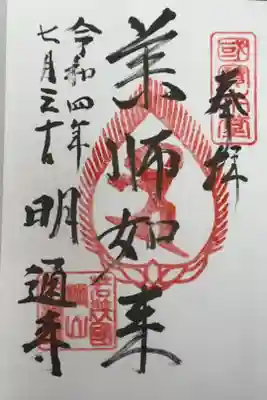 奉拝
薬師如来
令和四年
七月三十日
明通寺
若狭國